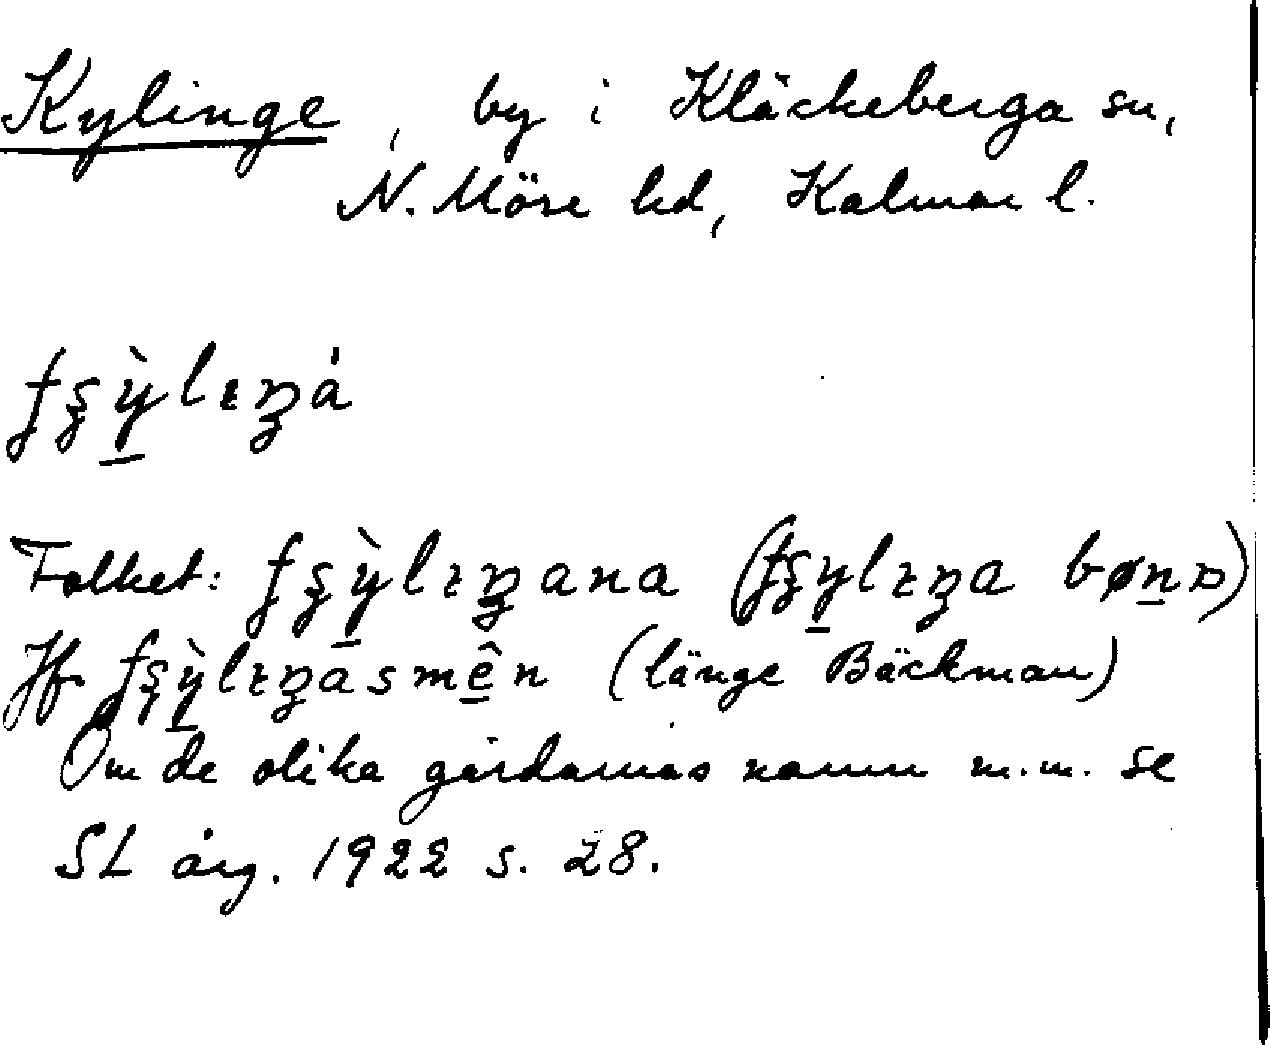 Kylinge, by i Kläckeberga sn,
N. Möre hd, Kalmar l.
ʄʂỳ̠lɪŋá
Folket: ʄʂỳ̠lɪŋana (ʄʂy̠lɪŋa bøn̠ɒ)
Jfr ʄʂỳ̠lɪŋásmê̠n (länge Bäckman)
Om de olika gårdarnas namn m.m. se
SL årg. 1922 s. 28.